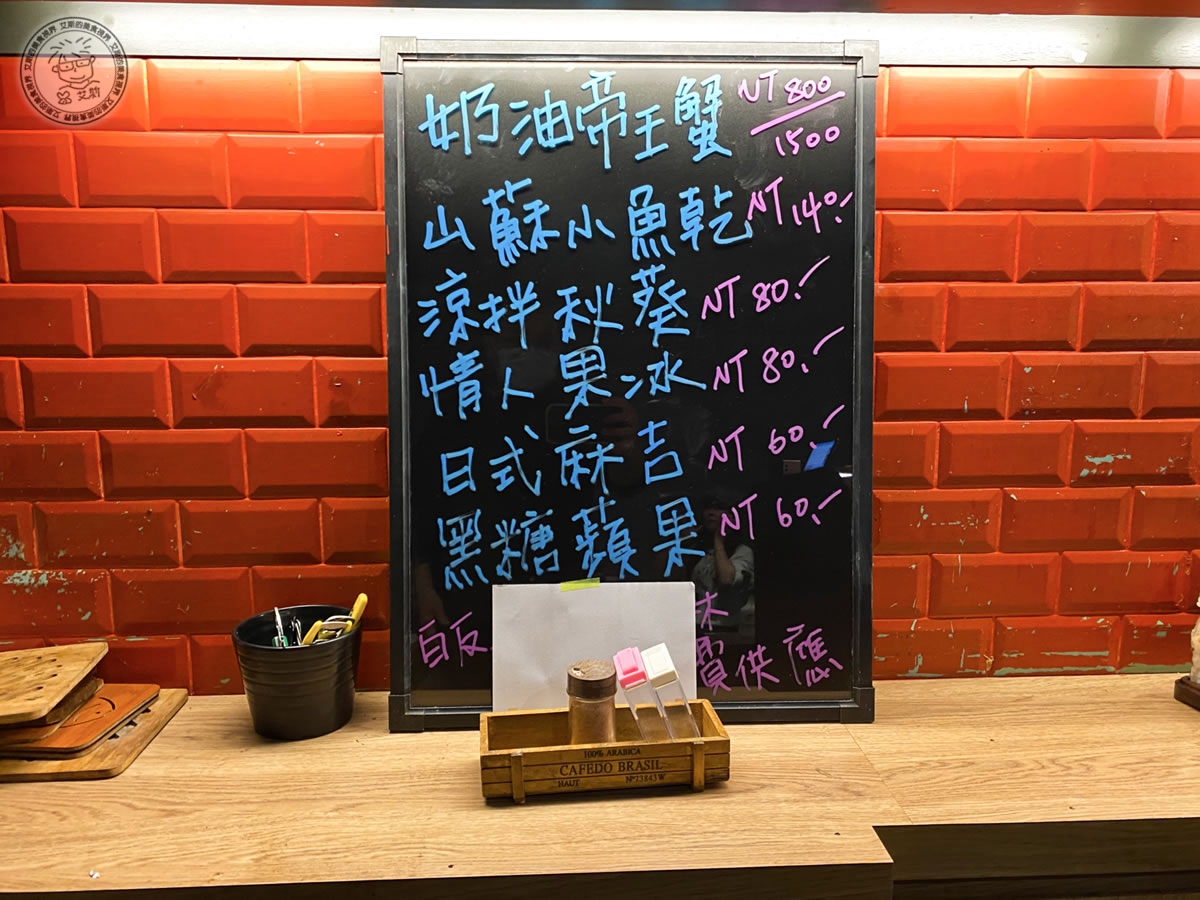 艾斯的美食視界 艾斯的美食視界 艾斯的美食視界
艾斯
奶油帝王蟹 NT 800
1500
山蘇小魚乾 NT 140.-
涼拌秋葵 NT 80.-
情人果冰 NT 80.-
日式麻吉 NT 60.-
黑糖蘋果 NT 60.-
白飯
賣供應
100% ARABICA
CAFEDO BRASIL
HAUT Nº73843W